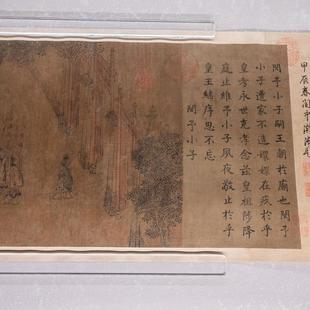 甲辰春閏中
閔予小子嗣王朝於廟也閔予
小子遭家不造嬛嬛在疚於乎
皇考永世克孝念茲皇祖陟降
庭止維予小子夙夜敬止於乎
皇王繼序思不忘
閔予小子